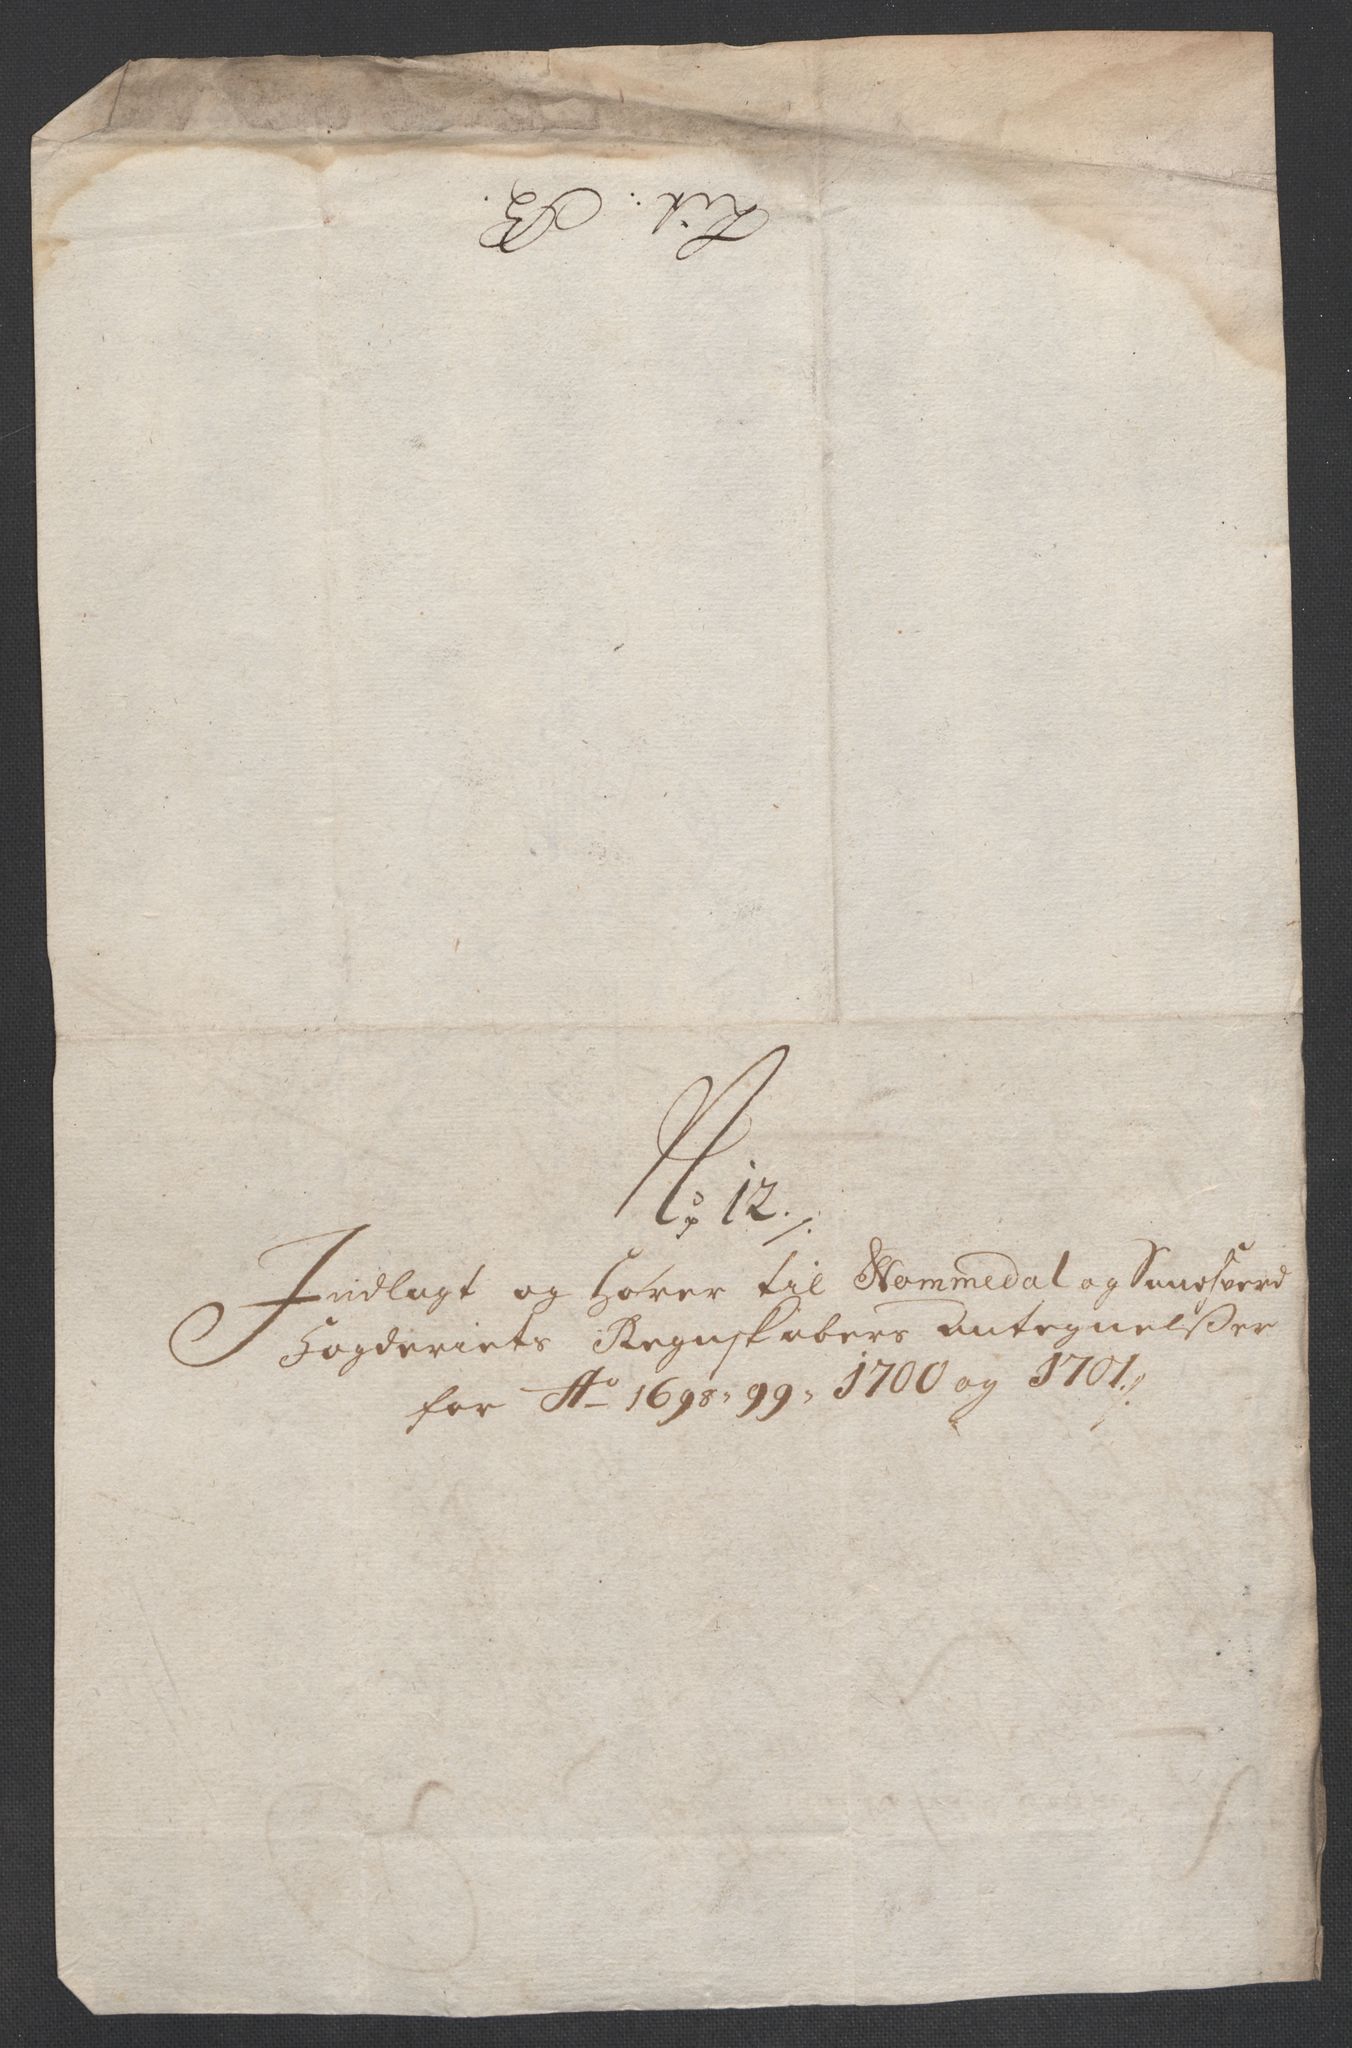 Lit: B.
No 12./.
Indlagt og Hører til Nommedal og Sandsverd
Fogderiets Regnskabers Antegnelsßer
for Ao 1698, 99, 1700 og 1701./.